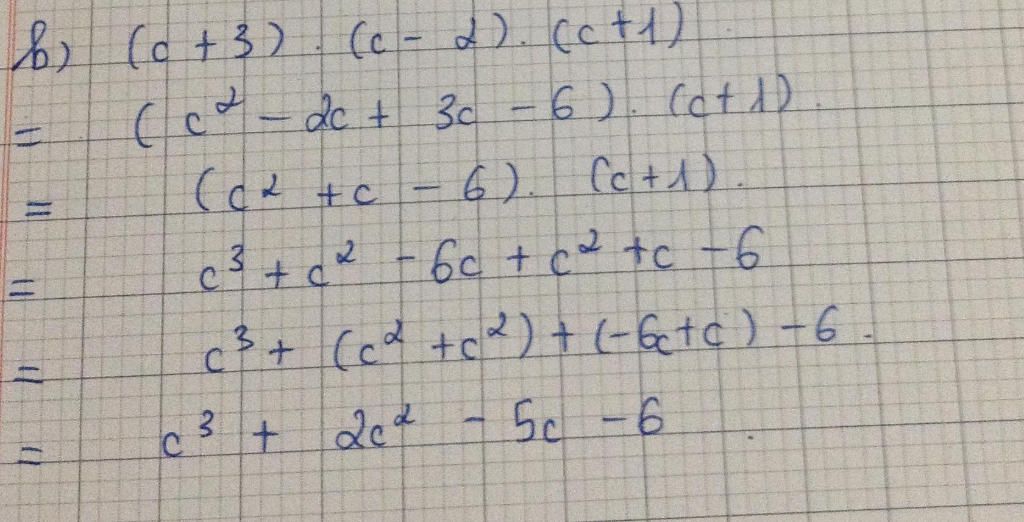 b) (c + 3) . (c - 2) . (c + 1)
= (c² - 2c + 3c - 6) . (c + 1).
= (c² + c - 6). (c + 1).
= c³ + c² - 6c + c² + c - 6
= c³ + (c² + c²) + (-6c + c) - 6.
= c³ + 2c² - 5c - 6.